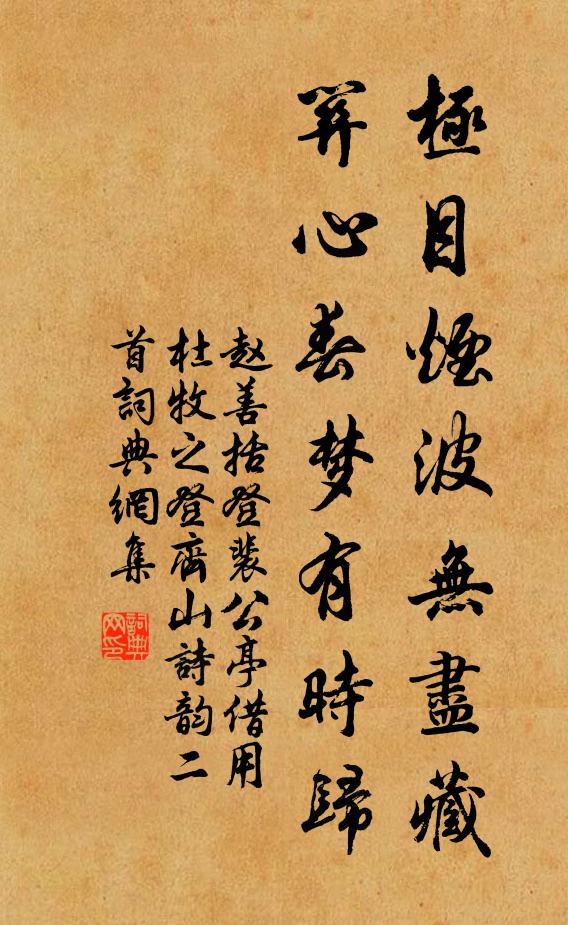 極目煙波無盡藏
關心春梦有時歸
赵善括登裴公亭借用
杜牧之登齊山詩韵二
首詞典網集
詞典网印